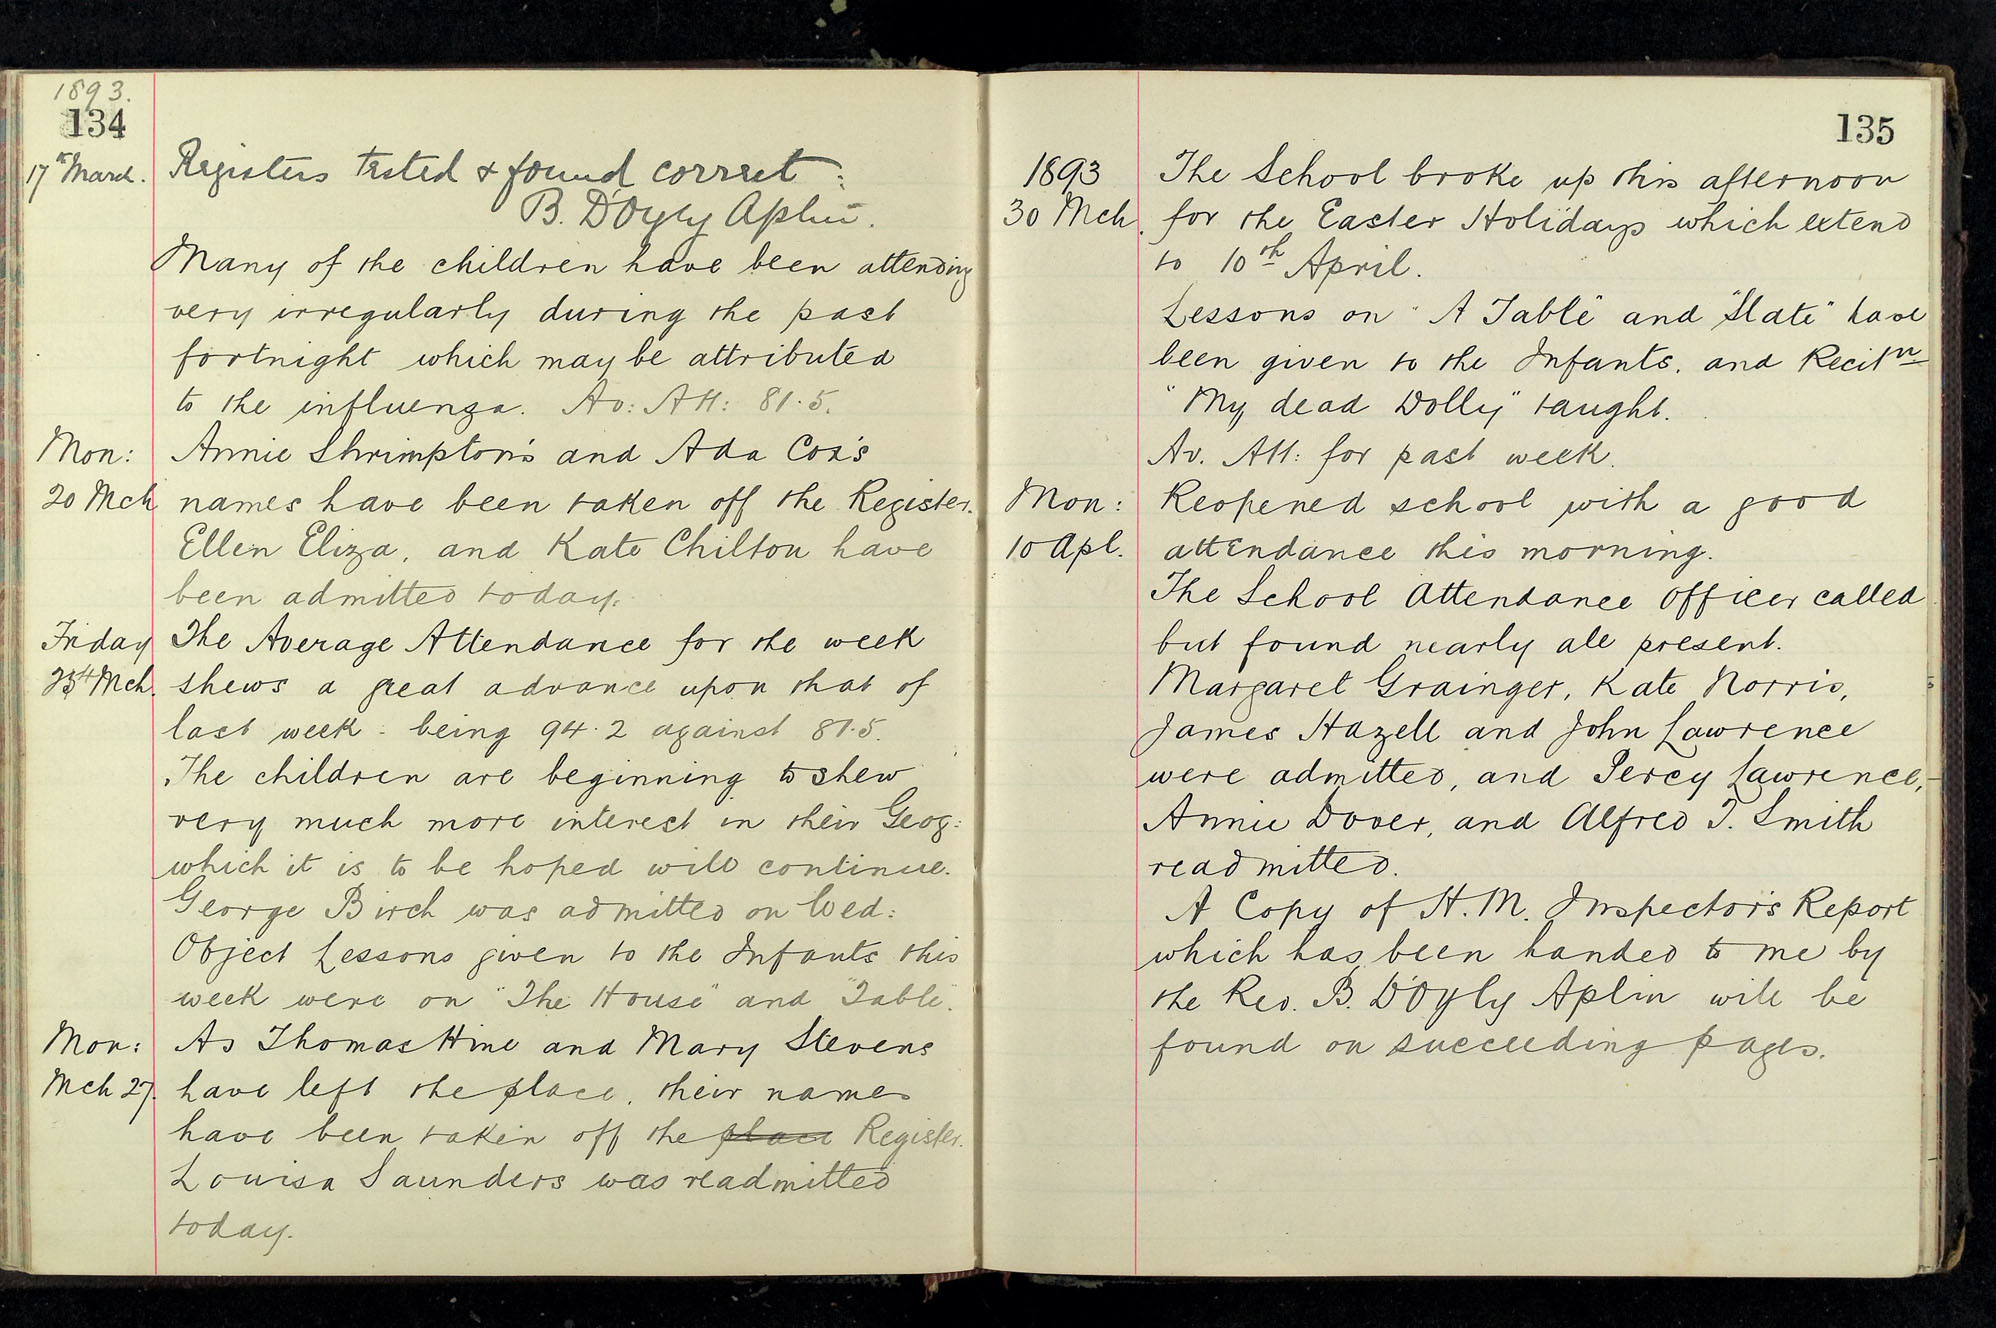 1893.
134
17th March. Registers tested & found correct:
B. D'Oyly Aplin.
Many of the children have been attending
very irregularly during the past
fortnight which may be attributed
to the influenza. Av: Att: 81.5.
Mon: Annie Shrimpton's and Ada Cox's
20 Mch names have been taken off the Register.
Ellen Eliza, and Kate Chilton have
been admitted today.
Friday The Average Attendance for the week
Mch. shews a great advance upon that of
last week: being 94.2 against 81.5.
The children are beginning to shew
very much more interest in their Geog:
which it is to be hoped will continue.
George Birch was admitted on Wed:
Object Lessons given to the Infants this
week were on "The House" and "Table".
Mon: As Thomas Hine and Mary Stevens
Mch 27. have left the place, their names
have been taken off the place Register.
Louisa Saunders was readmitted
today.
135
1893 The School broke up this afternoon
30 Mch. for the Easter Holidays which extend
to 10th April.
Lessons on "A Table" and "Slate" have
been given to the Infants. and Recitn.
"My dead Dolly" taught.
Av. Att: for past week.
Mon: Reopened school with a good
10 Apl. attendance this morning.
The School Attendance Officer called
but found nearly all present.
Margaret Grainger, Kate Norris,
James Hazell and John Lawrence
were admitted, and Percy Lawrence,
Annie Dover, and Alfred T. Smith
readmitted.
A Copy of H.M. Inspector's Report
which has been handed to me by
the Rev. B. D'Oyly Aplin will be
found on succeeding pages.